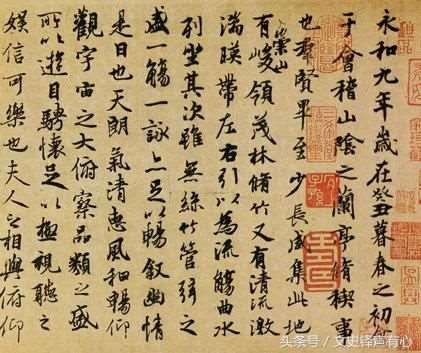 永和九年歲在癸丑暮春之初會
于會稽山陰之蘭亭脩稧事
也羣賢畢至少長咸集此地
崇山
有峻領茂林脩竹又有清流激
湍暎帶左右引以為流觴曲水
列坐其次雖無絲竹管弦之
盛一觴一詠亦足以暢敘幽情
是日也天朗氣清惠風和暢仰
觀宇宙之大俯察品類之盛
所以遊目騁懷足以極視聽之
娛信可樂也夫人之相與俯仰
头条号 / 文史声有心